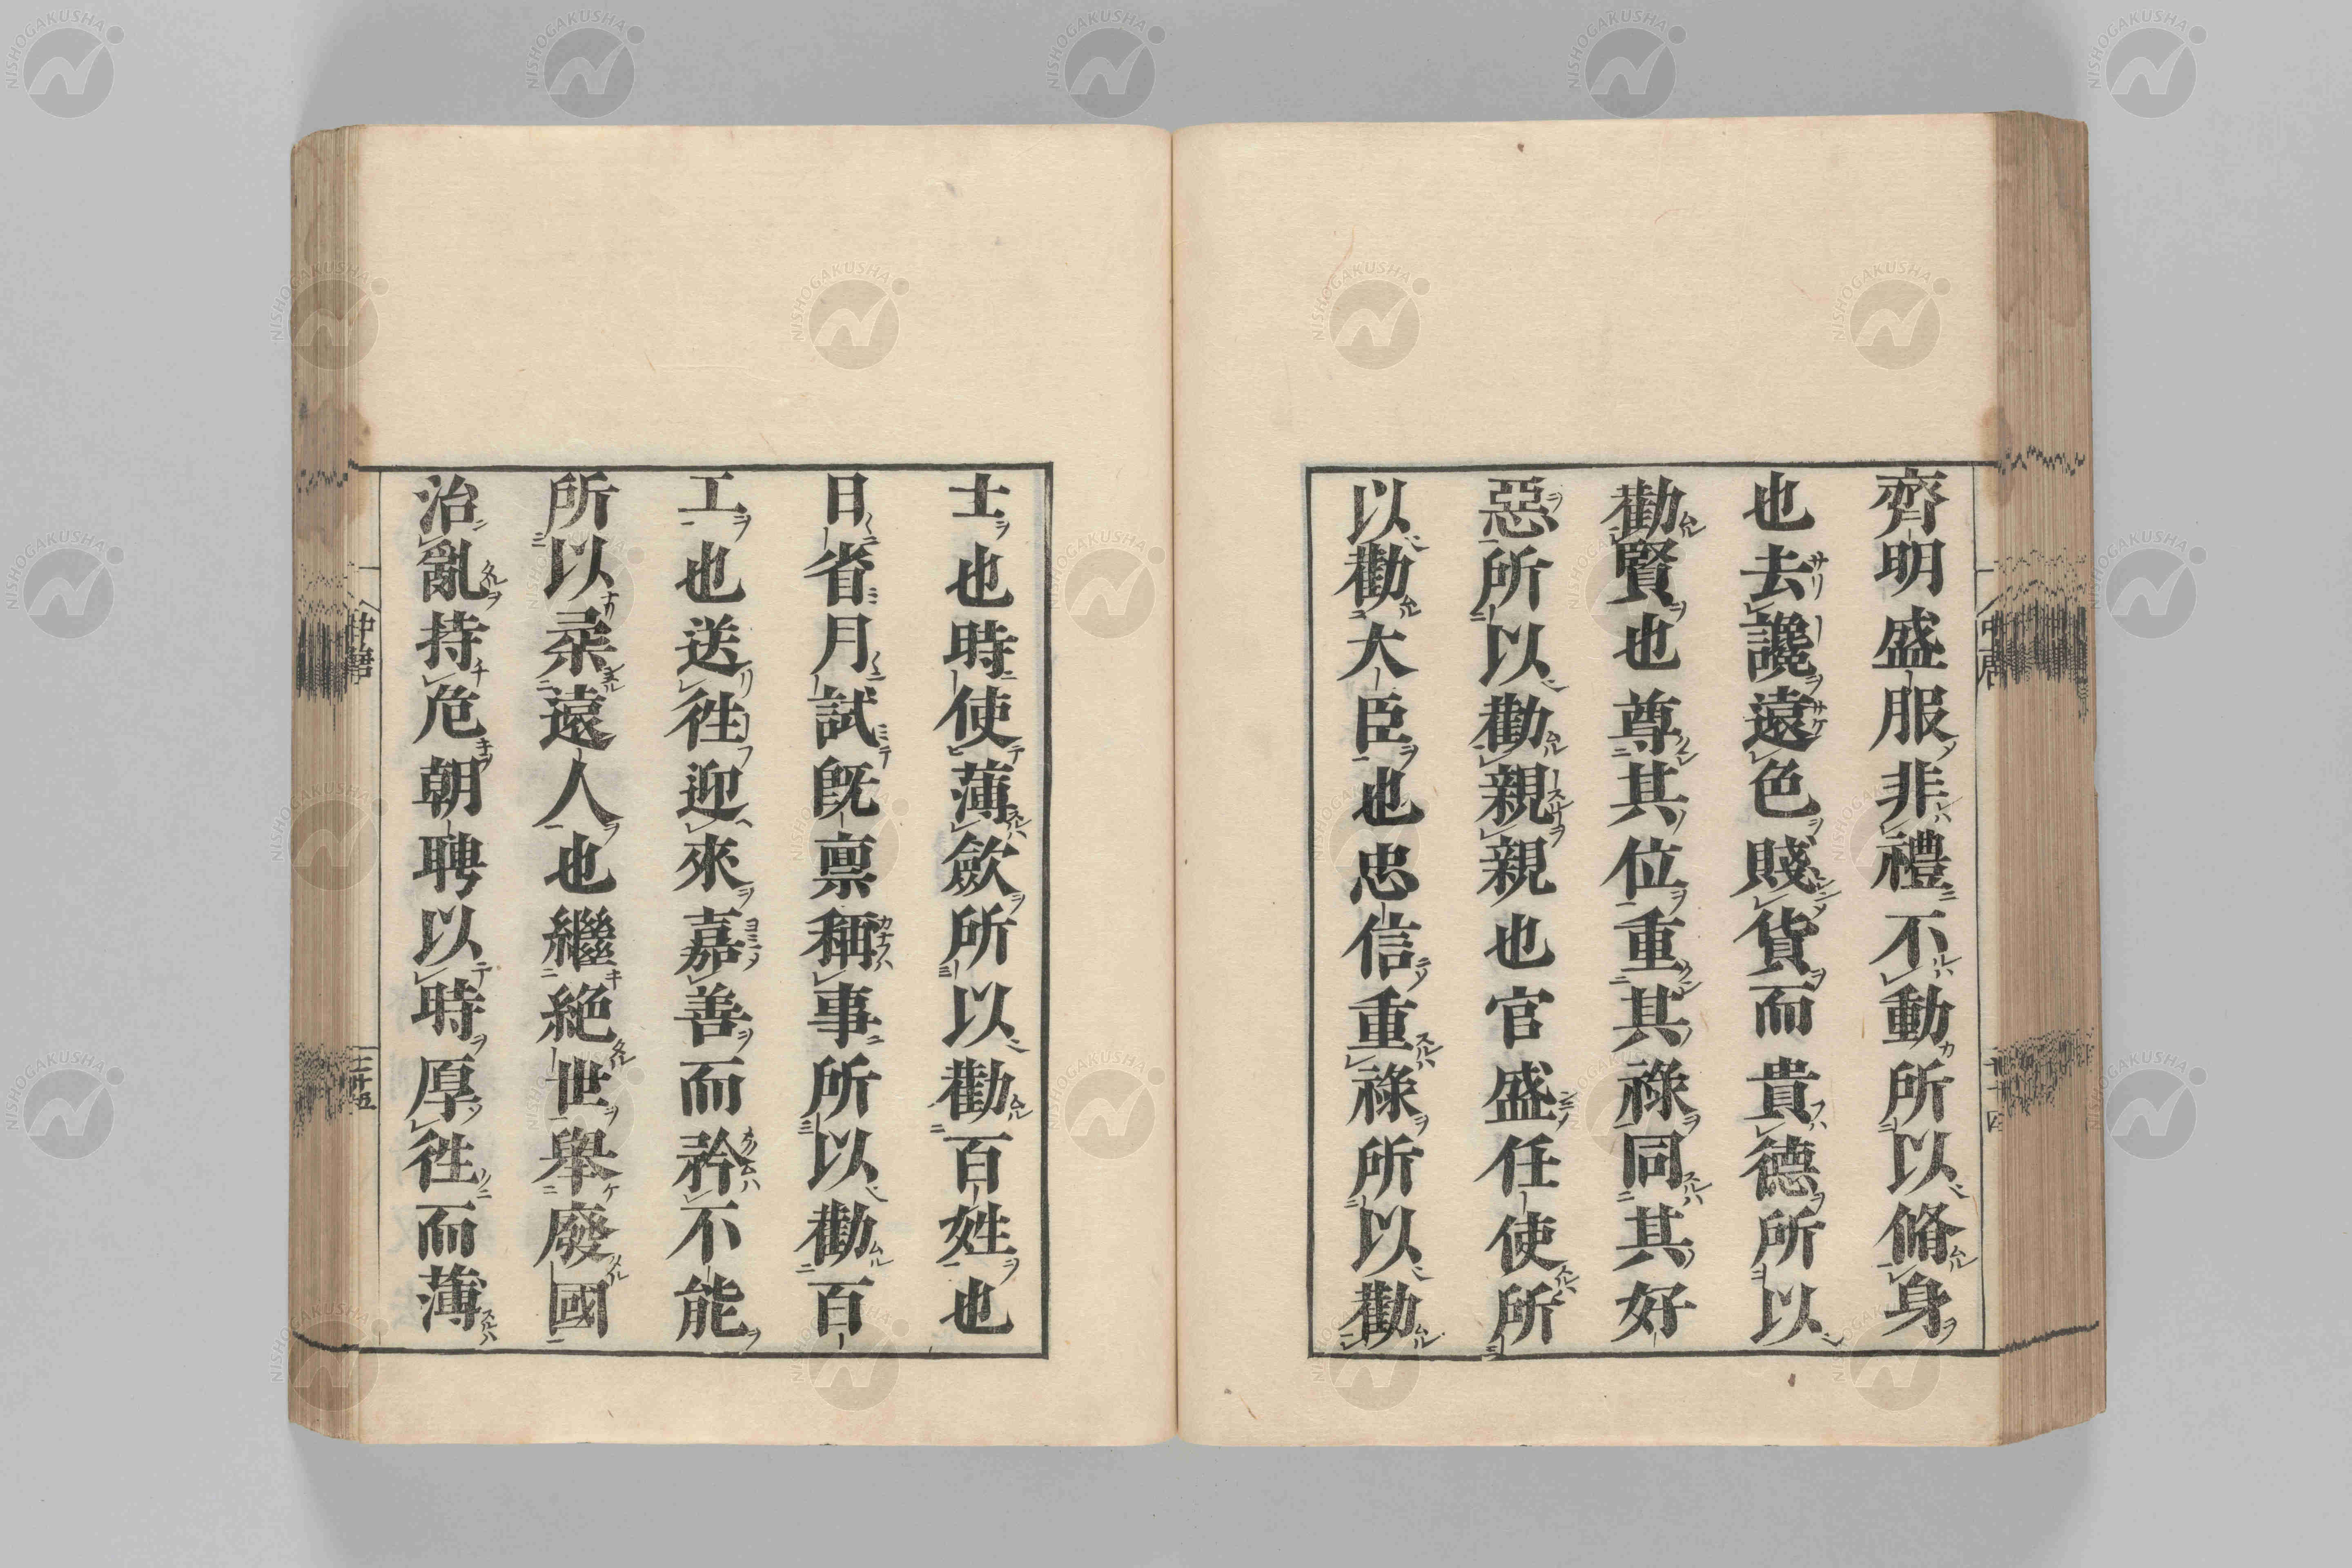 齊明盛服非禮不動所以脩身
也去讒遠色賤貨而貴德所以
勸賢也尊其位重其祿同其好
惡所以勸親親也官盛任使所
以勸大臣也忠信重祿所以勸
士也時使薄斂所以勸百姓也
日省月試旣禀稱事所以勸百
工也送徃迎來嘉善而矜不能
所以柔遠人也繼絶世舉廢國
治亂持危朝聘以時厚徃而薄
中庸
二十五
NISHOGAKUSHA